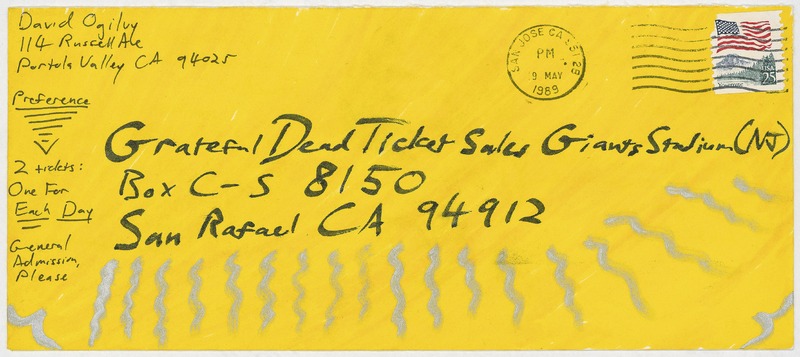 David Ogilvy
114 Russell Ave
Portola Valley CA 94025
Preference
2 tickets:
One For
Each Day
General
Admission,
Please
SAN JOSE CA 951 2B
PM
9 MAY
1989
USA
25
Grateful Dead Ticket Sales Giants Stadium (NJ)
Box C-S 8150
San Rafael CA 94912